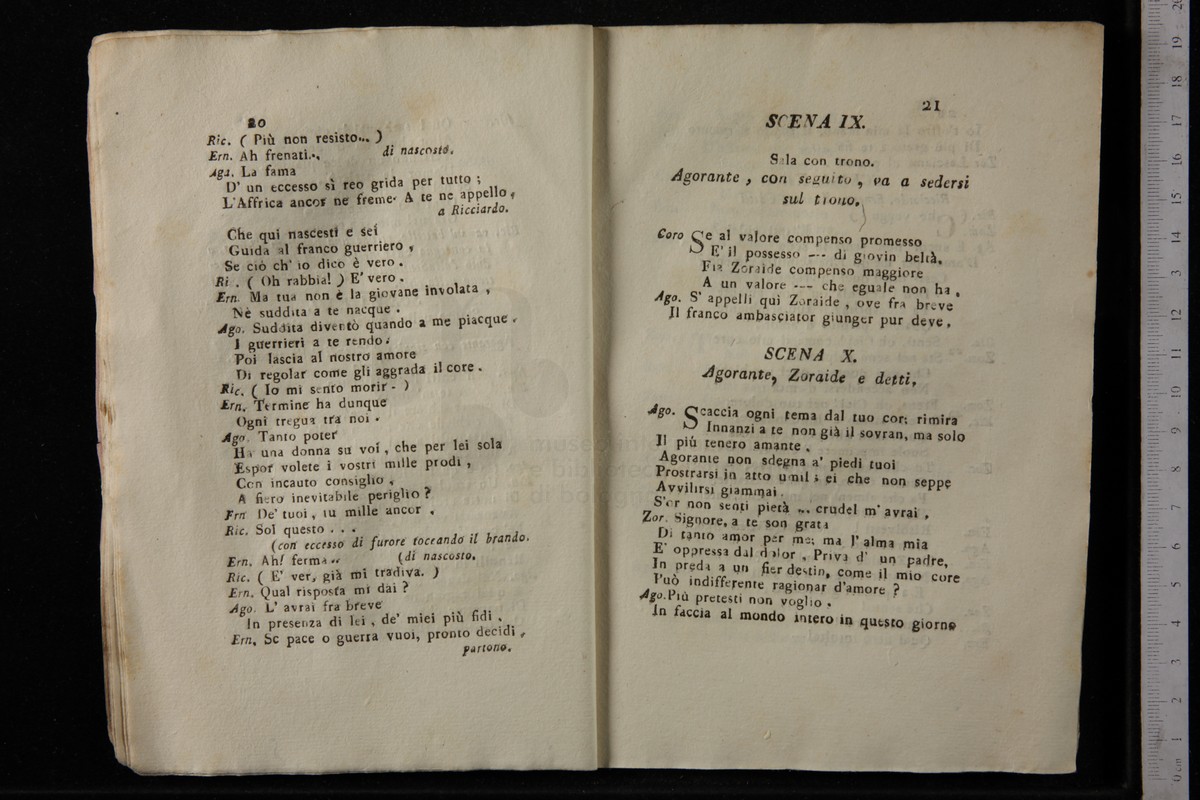 20
Ric. ( Più non resisto... )
Ern. Ah frenati.. di nascosto.
Ago. La fama
D' un eccesso sì reo grida per tutto ;
L'Affrica ancor ne freme. A te ne appello,
a Ricciardo.
Che qui nascesti e sei
Guida al franco guerriero ,
Se ciò ch' io dico è vero .
Ri . ( Oh rabbia! ) E' vero .
Ern. Ma tua non è la giovane involata ,
Nè suddita a te nacque .
Ago. Suddita diventò quando a me piacque .
I guerrieri a te rendo :
Poi lascia al nostro amore
Di regolar come gli aggrada il core .
Ric. ( Io mi sento morir - )
Ern. Termine ha dunque
Ogni tregua tra noi .
Ago. Tanto poter
Ha una donna su voi , che per lei sola
Espor volete i vostri mille prodi ,
Con incauto consiglio ,
A fiero inevitabile periglio ?
Ern De' tuoi , tu mille ancor .
Ric. Sol questo . . .
(con eccesso di furore toccando il brando.
Ern. Ah! ferma .. (di nascosto.
Ric. ( E' ver, già mi tradiva. )
Ern. Qual risposta mi dai ?
Ago. L' avrai fra breve
In presenza di lei , de' miei più fidi .
Ern. Se pace o guerra vuoi, pronto decidi .
partono.
21
SCENA IX.
Sala con trono.
Agorante , con seguito , va a sedersi
sul trono.
Coro Se al valore compenso promesso
E' il possesso --- di giovin beltà,
Fia Zoraide compenso maggiore
A un valore --- che eguale non ha .
Ago. S' appelli quì Zoraide , ove fra breve
Il franco ambasciator giunger pur deve .
SCENA X.
Agorante, Zoraide e detti.
Ago. Scaccia ogni tema dal tuo cor: rimira
Innanzi a te non già il sovran, ma solo
Il più tenero amante .
Agorante non sdegna a' piedi tuoi
Prostrarsi in atto umil ; ei che non seppe
Avvilirsi giammai .
S'or non senti pietà ... crudel m' avrai .
Zor. Signore, a te son grata
Di tanto amor per me; ma l' alma mia
E' oppressa dal dolor . Priva d' un padre,
In preda a un fier destin, come il mio core
Può indifferente ragionar d'amore ?
Ago. Più pretesti non voglio .
In faccia al mondo intero in questo giorno